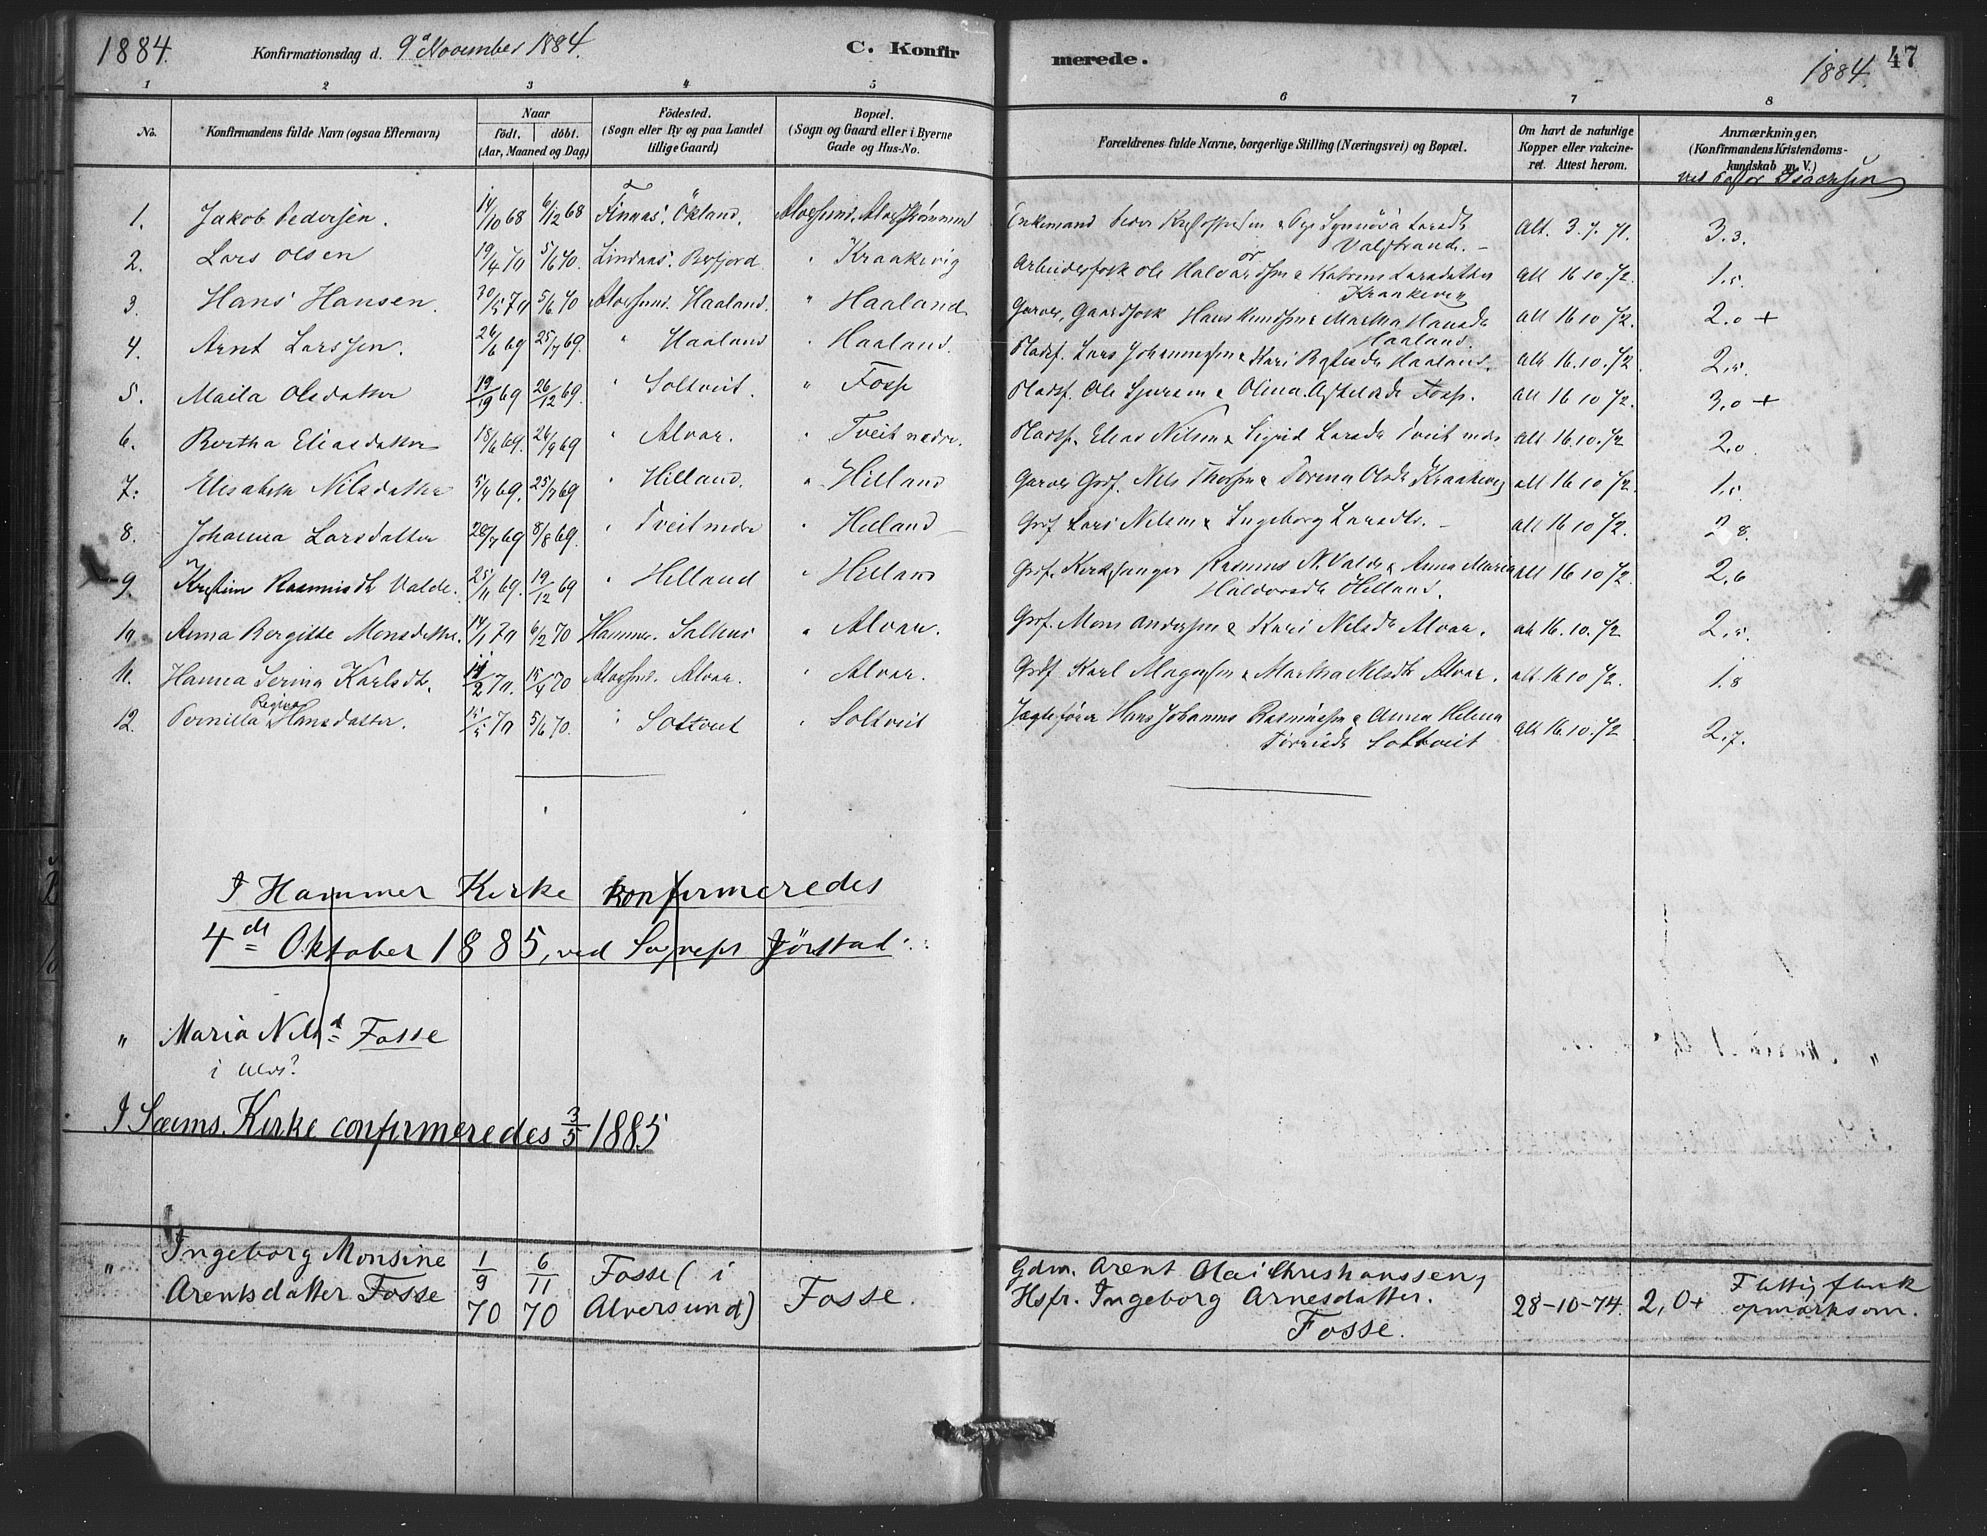 1884. Konfirmationsdag d. 9d November 1884. C. Konfirmerede. 1884. 47
1 2 3 4 5 6 7 8
No. Konfirmandens fulde Navn (ogsaa Efternavn) Naar födt, döbt. (Aar, Maaned og Dag) Födested. (Sogn eller By og paa Landet tillige Gaard) Bopæl. (Sogn og Gaard eller i Byerne Gade og Hus-No. Forældrenes fulde Navne, borgerlige Stilling (Næringsvei) og Bopæl. Om havt de naturlige Kopper eller vakcineret. Attest herom. Anmærkninger, (Konfirmandens Kristendomskundskab m. V.)
ved Pastor Isachsen
1. Jakob Pedersen. 14/10 68 6/12 68 Finnas. Ökland. Alversund. Alverstrømmen Enkemand Peder & Synnöva Larsdr Valstrand. - Att. 3.7.71. 3.3.
2. Lars Olsen 19/4 70 5/6 70. Lindaas. " Kraakevig Arbeiderfolk Ole Halvorsen & Katrine Larsdatter Kraakevig att 16 10. 72. 1.5.
3. Hans Hansen. 5/6 70 Alversund. Haaland. " Haaland Garver, Gaardfolk Hans Knudsen & Martha Hansdr Haaland. att 16 10 72. 2.0 +
4. Arnt Larssen. 26/6 69 25/7 69. " Haaland " Haaland. Pladsf. Lars Johannessen & Kari Haaland. att 16.10.72. 2.5.
5. Maila Olsdatter 26/12 69. " Soltveit. " Fosse Pladsf. Ole & Olina Fosse. att 16 10 72. 3.0 +
6. Bertha Eliasdatter 18/6 69. 26/9 69 " Alvær. " Tveit nedr. Pladsf. Elias Nilsen & Sigrid Larsdr Tveit nedr att 16.10.72 2.0.
7. Elisabeth Nilsdatter 69. 25/7 69 " Hilland. " Hilland Garver Grdf. Nils & Olsdr Kraakevig att 16 10 72. 1.5.
8. Johanna Larsdatter 26/7 69 8/8 69. " Tveit nedre " Hilland Grdf Lars Nilsen & Ingeborg Larsdtr. - att 16 10 72. 2 8.
9. Kristine Rasmusdtr Valde. 25/11 69. 19/12 69 " Hilland " Hilland Grdf. Kirkesanger Rasmus N. Valde & Anna Maria Haldorsdr Hilland. att 16 10 72. 2.6
10. Anna Bergitte Monsdatter. 14/1 70 6/2 70 Hammer. Salhus " Alvær. Grdf. Mons Andersen & Kari Nilsdr Alvær. att 16.10.72 2.5.
11. Hanna Serina Karlsdtr. 70. 15/4 70 Alversund. Alvær. " Alvær. Grdf Karl Magnesen & Martha Nilsdtr Alvær. att 16 10 72. 1.8
12. Pernilla Regina Hansdatter. 15/5 70 5/6 70. " Soltveit " Soltveit Jægtefører Hans Johannes Rasmussen & Anna Helena Soltveit att 16.10.72 2.7.
I Hammer Kirke konfirmeredes
4de Oktober 1885, ved Sognepr Jörstad.
" Maria Nilsd Fosse
i Alvs?
I Sæims Kirke confirmeredes 3/5 1885
" Ingeborg Monsine Arentsdatter Fosse 1/9 70 6/11 70 Fosse (i Alversund) Fosse. Gdm. Arent Olai Christianssen, Hsfr. Ingeborg Arnesdatter. Fosse. 28-10-74. 2,0+ Flittig, flink opmærksom.